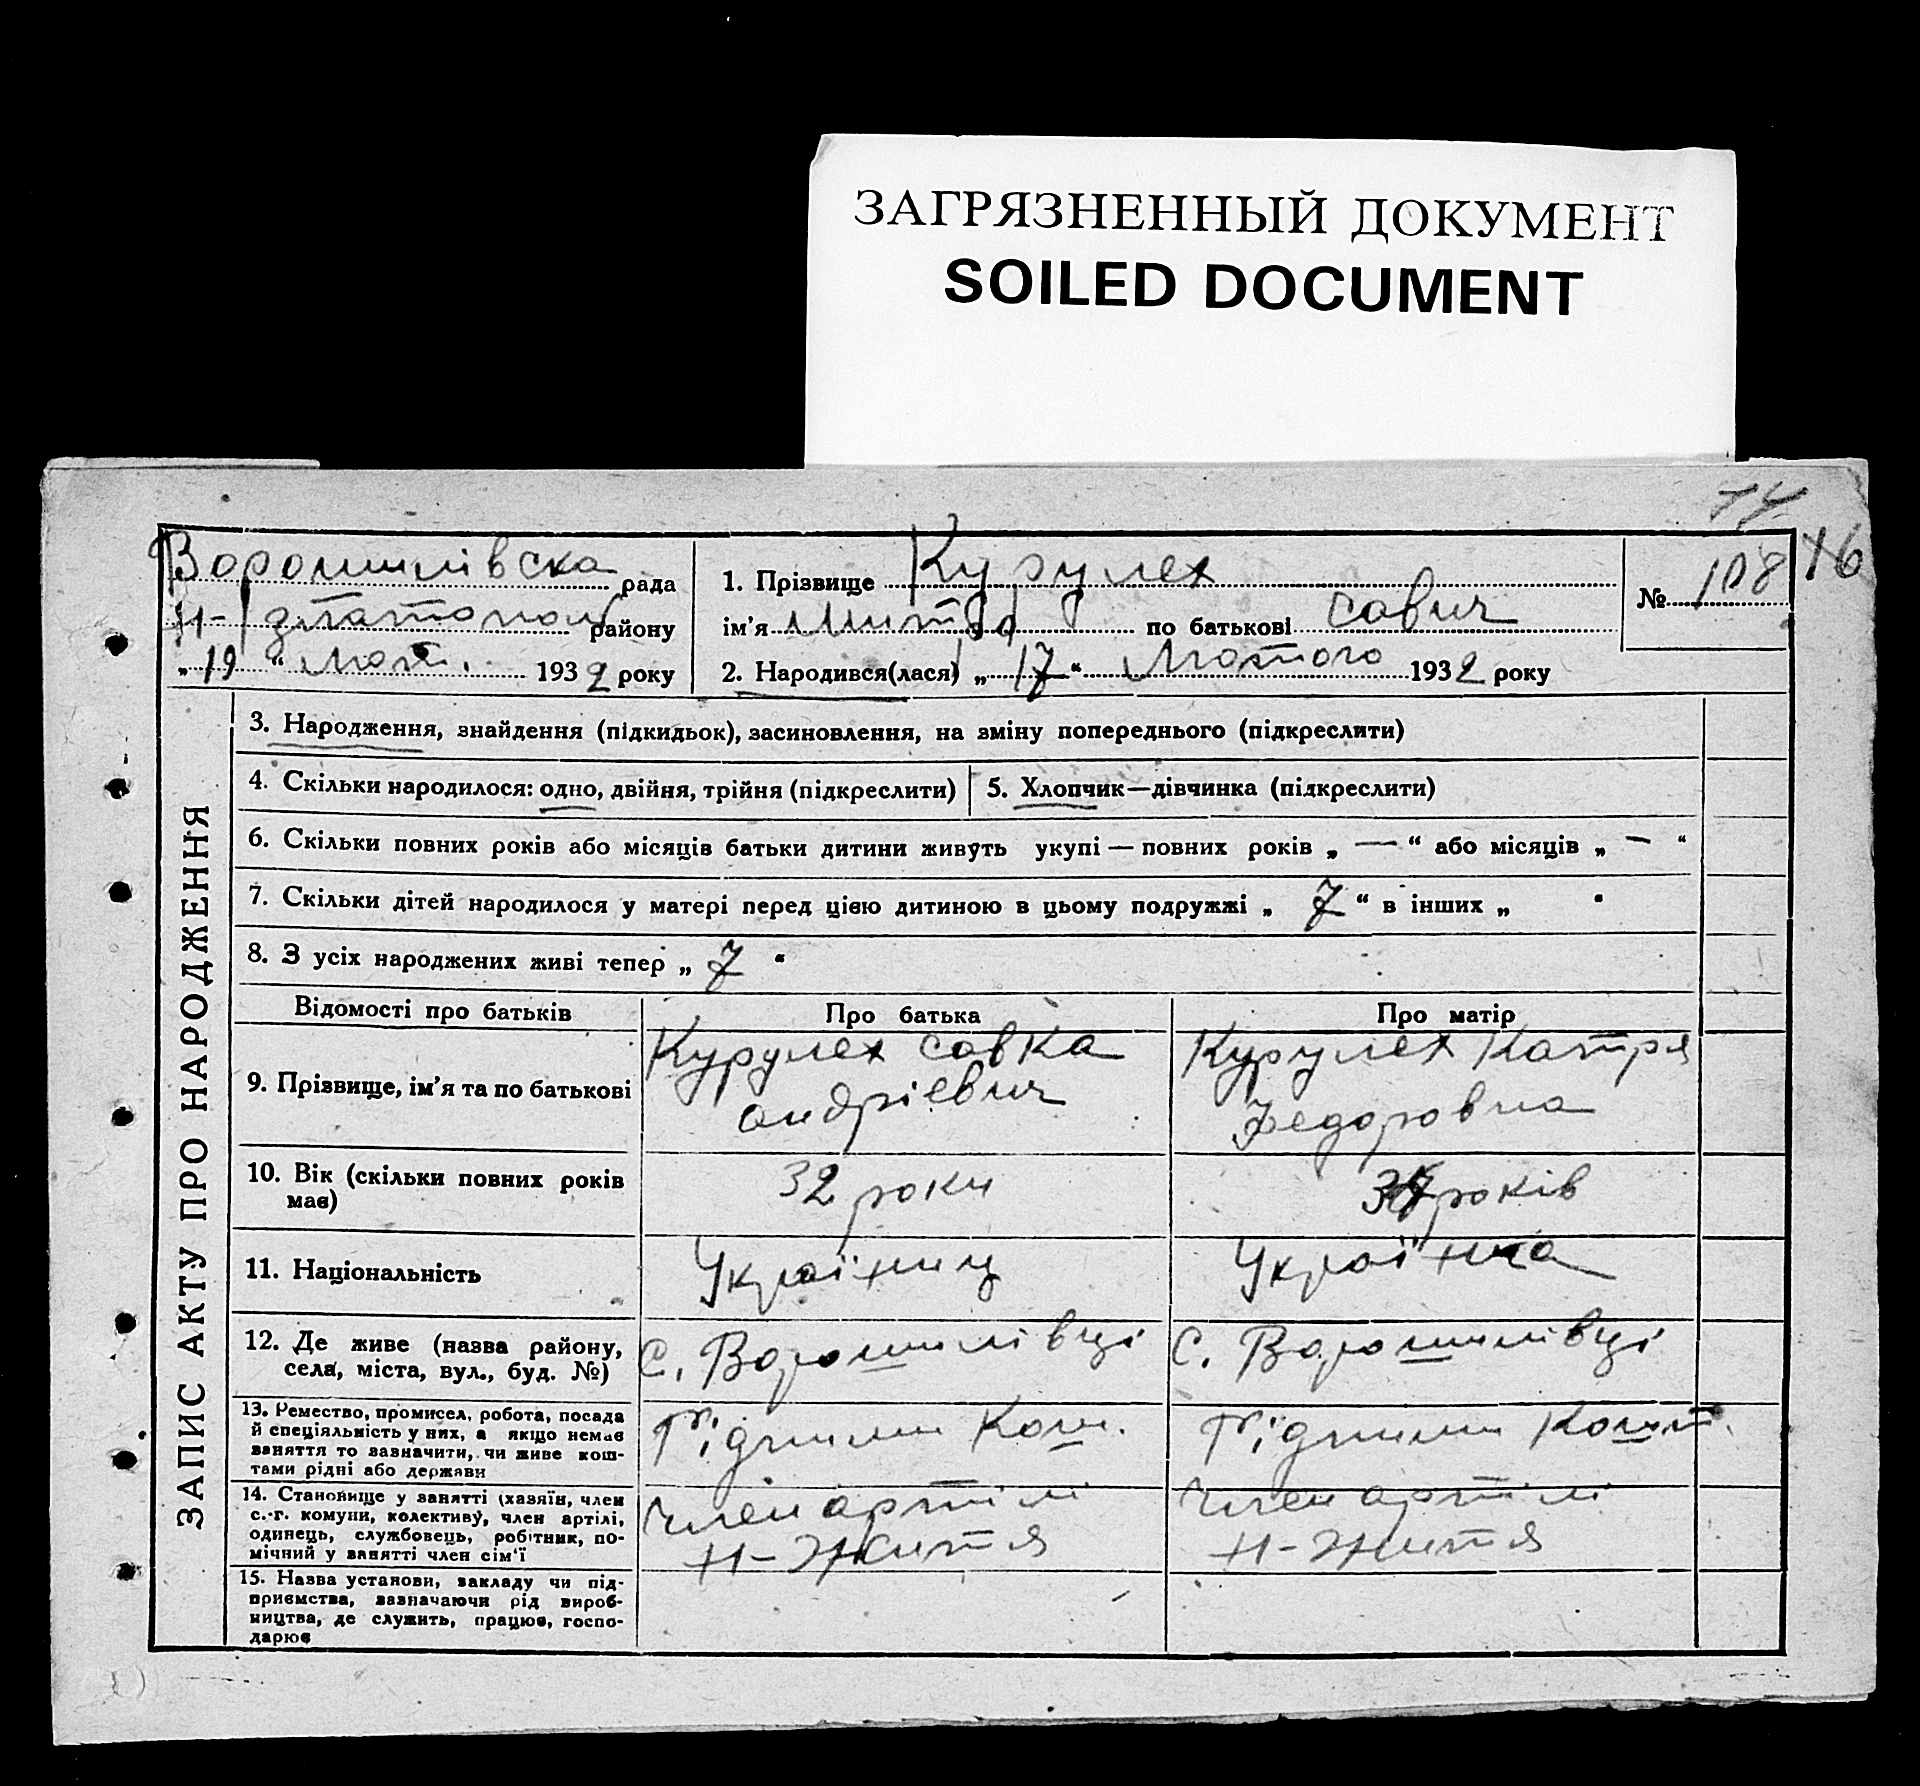 ЗАГРЯЗНЕННЫЙ ДОКУМЕНТ
SOILED DOCUMENT
Ворошилівска рада
района
„19“ лют. 1932 року
1. Прізвище Курулех
ім'я по батькові Савич
2. Народився(лася) „17“ Лютого 1932 року
№ 108
16
ЗАПИС АКТУ ПРО НАРОДЖЕННЯ
3. Народження, знайдення (підкидьок), засиновлення, на зміну попереднього (підкреслити)
4. Скільки народилося: одно, двійня, трійня (підкреслити)
5. Хлопчик—дівчинка (підкреслити)
6. Скільки повних років або місяців батьки дитини живуть укупі — повних років „ — “ або місяців „ — “
7. Скільки дітей народилося у матері перед цією дитиною в цьому подружжі „ 7 “ в інших „ “
8. З усіх народжених живі тепер „ 7 “
Відомості про батьків
Про батька
Про матір
9. Прізвище, ім'я та по батькові
Курулех Савка
Андрієвич
Курулех Катря
Федоровна
10. Вік (скільки повних років
має)
32 роки
років
11. Національність
Українец
Українка
12. Де живе (назва району,
села, міста, вул., буд. №)
С. Ворошилівці
С. Ворошилівці
13. Ремество, промисел, робота, посада
й спеціяльність у них, а якщо немає
заняття то зазначити, чи живе кош-
тами рідні або держави
Рідними Кош.
Рідними Кошт.
14. Становище у занятті (хазяїн, член
с.-г. комуни, колективу, член артілі,
одинець, службовець, робітник, по-
мічний у занятті член сім'ї
Член артілі
Н-Життя
Член артілі
Н-Життя
15. Назва установи, закладу чи під-
приємства, зазначаючи рід вироб-
ництва, де служить, працює, госпо-
дарює